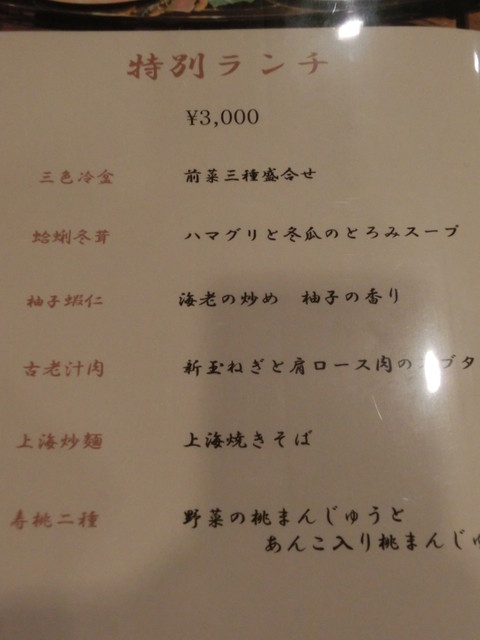 特別ランチ
¥3,000
三色冷盆 前菜三種盛合せ
蛤蜊冬茸 ハマグリと冬瓜のとろみスープ
柚子蝦仁 海老の炒め 柚子の香り
古老汁肉 新玉ねぎと肩ロース肉の
上海炒麺 上海焼きそば
寿桃二種 野菜の桃まんじゅうと
あんこ入り桃まんじゅ